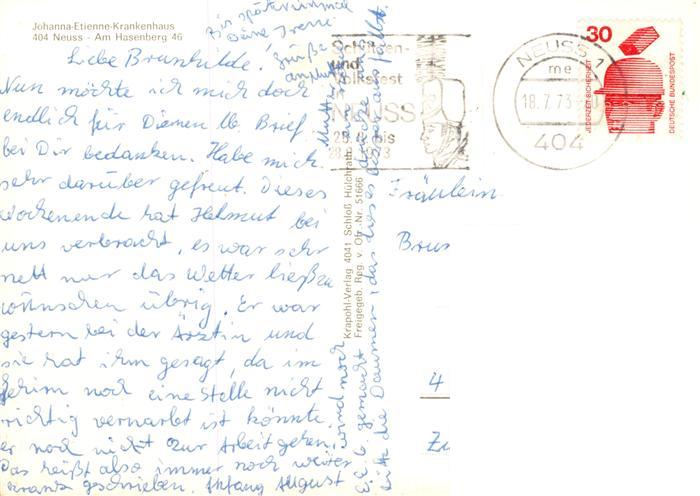 Johanna-Etienne-Krankenhaus
404 Neuss - Am Hasenberg 46
Liebe Brunhilde!
Nun möchte ich mich doch
endlich für Deinen lb. Brief
bei Dir bedanken. Habe mich
sehr darüber gefreut. Dieses
Wochenende hat Helmut bei
uns verbracht, es war sehr
nett nur das Wetter ließ zu
wünschen übrig. Er war
gestern bei der Ärztin und
sie hat ihm gesagt, da im
Gehirn noch eine Stelle nicht
richtig vernarbt ist könnte
er noch nicht zur Arbeit gehen.
Das heißt also immer noch weiter
krank geschrieben. Anfang August
wird noch
E.E.G. gemacht
bitte die Daumen, das dieses besser ausfällt.
Bis spät
Deine Irene
Grüße
Krapohl-Verlag 4041 Schloß Hülchrath
Freigegeb. Reg. v. Ofr. Nr. 51666
Schützen-
und
Volksfest
NEUSS
bis
NEUSS 1
me
18.7.73
404
30
JEDERZEIT SICHERHEIT
DEUTSCHE BUNDESPOST
Fräulein
Brus
4
Zu